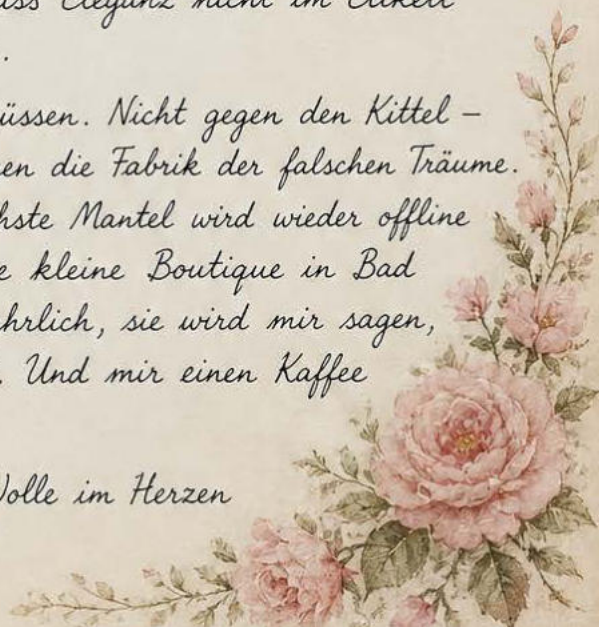 ass Eleganz nicht im Etikett
.
üssen. Nicht gegen den Kittel –
en die Fabrik der falschen Träume.
hste Mantel wird wieder offline
e kleine Boutique in Bad
hrlich, sie wird mir sagen,
. Und mir einen Kaffee
Wolle im Herzen